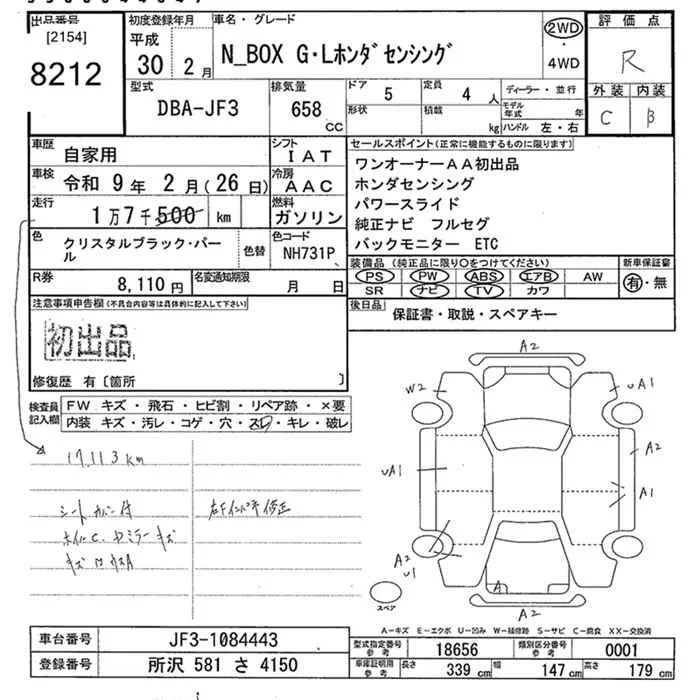 出品番号
[2154]
8212
初度登録年月
平成
30 2 月
車名・グレード
N_BOX G・Lホンダセンシング
2WD
・
4WD
評価点
R
外装 内装
C B
型式
DBA-JF3
排気量
658
CC
ドア 5
形状
定員 4 人
積載 kg
ディーラー・並行
モデル年式 年
ハンドル 左・右
車歴 自家用
シフト IAT
車検 令和 9 年 2 月(26 日)
冷房 AAC
走行 1 万 7 千 500 km
燃料 ガソリン
色 クリスタルブラック・パール
色替
色コード NH731P
R券 8,110 円
名変通知期限 月 日
セールスポイント(正常に機能するものに限ります)
ワンオーナーAA初出品
ホンダセンシング
パワースライド
純正ナビ フルセグ
バックモニター ETC
装備品 (純正品に限り○をつけてください)
PS PW ABS エアB AW
SR ナビ TV カワ
新車保証書
有・無
後日品 保証書・取説・スペアキー
注意事項申告欄(不具合内容等は具体的に記入して下さい)
初出品
修復歴 有〔箇所 〕
検査員記入欄
FW キズ・飛石・ヒビ割・リペア跡・×要
内装 キズ・汚レ・コゲ・穴・スレ・キレ・破レ
17,113 km
シートカバー付
ホイルC、ドミラーキズ
右Fインパネ修正
A2
W2
uA1
uA1
A2
A1
A2
u1
A
A2
スペア
A-キズ E-エクボ U-凹み W-補修跡 S-サビ C-腐食 XX-交換済
車台番号 JF3-1084443
登録番号 所沢 581 さ 4150
型式指定番号 参考 18656
類別区分番号 参考 0001
車庫証明用 参考 長さ 339 cm 幅 147 cm 高さ 179 cm